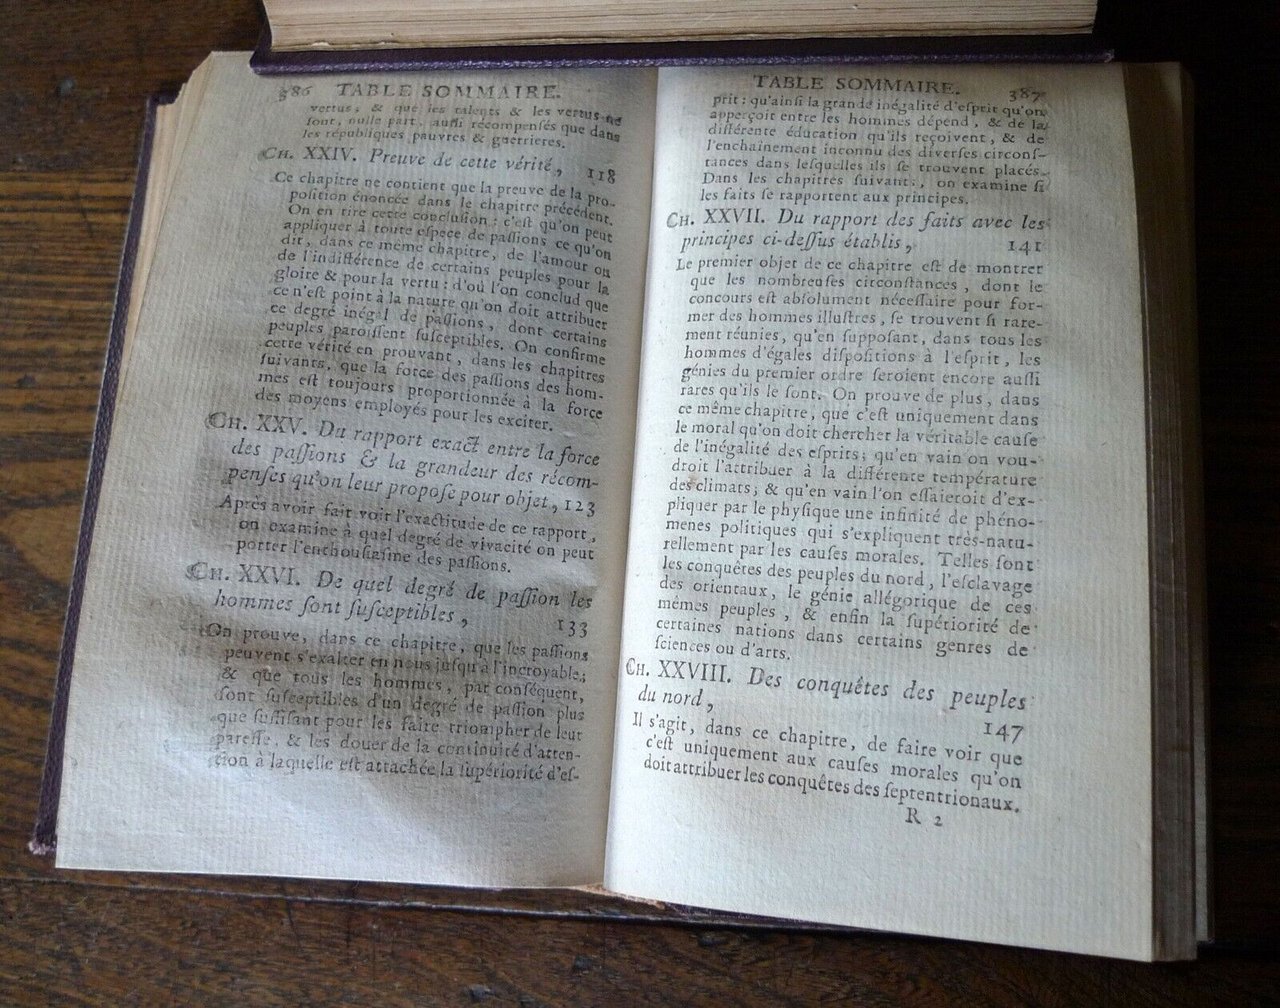 386 TABLE SOMMAIRE.
vertus, & que les talents & les vertus ne
sont, nulle part, aussi récompensés que dans
les républiques pauvres & guerrieres.
CH. XXIV. Preuve de cette vérité, 118
Ce chapitre ne contient que la preuve de la pro-
position énoncée dans le chapitre précédent.
On en tire cette conclusion : c'est qu'on peut
appliquer à toute espece de passions ce qu'on
dit, dans ce même chapitre, de l'amour ou
de l'indifférence de certains peuples pour la
gloire & pour la vertu : d'où l'on conclud que
ce n'est point à la nature qu'on doit attribuer
ce degré inégal de passions, dont certains
peuples paroissent susceptibles. On confirme
cette vérité en prouvant, dans les chapitres
suivants, que la force des passions des hom-
mes est toujours proportionnée à la force
des moyens employés pour les exciter.
CH. XXV. Du rapport exact entre la force
des passions & la grandeur des récom-
penses qu'on leur propose pour objet, 123
Après avoir fait voir l'exactitude de ce rapport,
on examine à quel degré de vivacité on peut
porter l'enthousiasme des passions.
CH. XXVI. De quel degré de passion les
hommes sont susceptibles, 133
On prouve, dans ce chapitre, que les passions
peuvent s'exalter en nous jusqu'à l'incroyable;
& que tous les hommes, par conséquent,
sont susceptibles d'un degré de passion plus
que suffisant pour les faire triompher de leur
paresse, & les douer de la continuité d'atten-
tion à laquelle est attachée la supériorité d'es-
TABLE SOMMAIRE. 387
prit : qu'ainsi la grande inégalité d'esprit qu'on
apperçoit entre les hommes dépend, & de la
différente éducation qu'ils reçoivent, & de
l'enchaînement inconnu des diverses circons-
tances dans lesquelles ils se trouvent placés.
Dans les chapitres suivants, on examine si
les faits se rapportent aux principes.
CH. XXVII. Du rapport des faits avec les
principes ci-dessus établis, 141
Le premier objet de ce chapitre est de montrer
que les nombreuses circonstances, dont le
concours est absolument nécessaire pour for-
mer des hommes illustres, se trouvent si rare-
ment réunies, qu'en supposant, dans tous les
hommes d'égales dispositions à l'esprit, les
génies du premier ordre seroient encore aussi
rares qu'ils le sont. On prouve de plus, dans
ce même chapitre, que c'est uniquement dans
le moral qu'on doit chercher la véritable cause
de l'inégalité des esprits; qu'en vain on vou-
droit l'attribuer à la différente température
des climats; & qu'en vain l'on essaieroit d'ex-
pliquer par le physique une infinité de phéno-
menes politiques qui s'expliquent très-natu-
rellement par les causes morales. Telles sont
les conquêtes des peuples du nord, l'esclavage
des orientaux, le génie allégorique de ces
mêmes peuples, & enfin la supériorité de
certaines nations dans certains genres de
sciences ou d'arts.
CH. XXVIII. Des conquêtes des peuples
du nord, 147
Il s'agit, dans ce chapitre, de faire voir que
c'est uniquement aux causes morales qu'on
doit attribuer les conquêtes des septentrionaux.
R 2